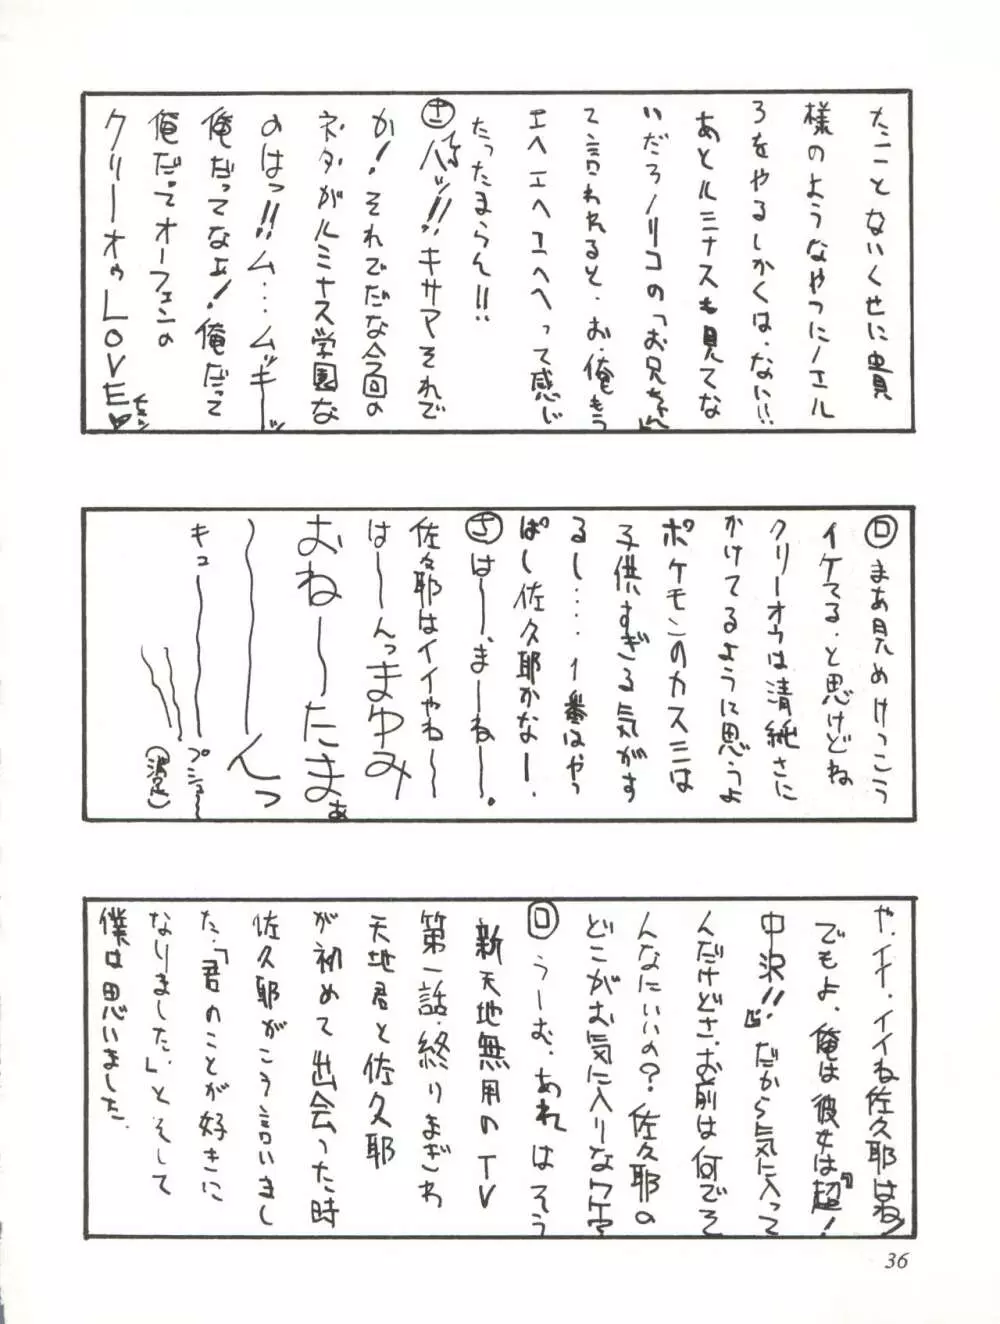 たことないくせに貴
様のようなやつにノエル
ろをやるしかくは、なに!!
あとルミナスも見てな
いだろノリコの「お兄ちゃん」
て言われると、お、俺もう
エヘエヘエヘヘって感じ
たったまらん!!
キサマそれで
か!それでだな今回の
ネタがルミナス学園な
のはっ!!ム…ムッキーッ
俺だってなぁ!俺だって
俺だってオーフェンの
クリーオゥLOVE♥
ロ まあ見ためけっこう
イケてる、と思けどね
クリーオウは清純さに
かけてるように思うよ
ポケモンのカスミは
子供すぎる気がす
るし…、1番はやっ
ぱし佐久耶かなー、
さ は〜、ま〜ね〜。
佐久耶はイイやね〜
は〜んっまゆみ
おね〜たまぁ
〜んっ
キュ〜
プシュ〜
や、イイ、イイね佐久耶はね!
でもよ、俺は彼女は『超!
中沢!!』だから気に入って
んだけどさ、お前は何でそ
んなにいいの?佐久耶の
どこがお気に入りなワケ?
ロ うーむ、あれはそう
新天地無用のTV
第一話、終りまぎわ
天地君と佐久耶
が初めて出会った時
佐久耶がこう言いまし
た、「君のことが好きに
なりました」とそして
僕は思いました。
36